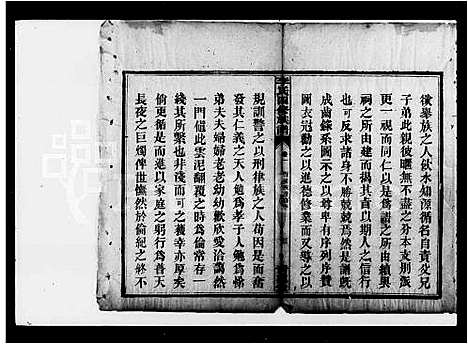 徵舉族之人飲水知源循名自責父兄
子弟此親彼曙無不盡之分本支別派
更一視而同仁以是為譜之所由續與
祠之所由建而揭其旨以期人之信行
也可反求諸身不勝兢兢焉然是譜旣
成齒錄系圖示之以尊卑有序列序贊
圖衣冠勸之以進德修業而又勗之以
規訓警之以刑律族之人苟因是而奮
發其仁義之天人勉為孝子人勉為悌
弟夫夫婦婦老老幼幼歡欣愛洽藹然
一門値此雲泥翻覆之時為倫常存一
綫其所繫也非淺而可之穫幸亦厚矣
倘更循是而進以家庭之躬行為普天
長夜之巨燭俾世憮然於倫紀之終不